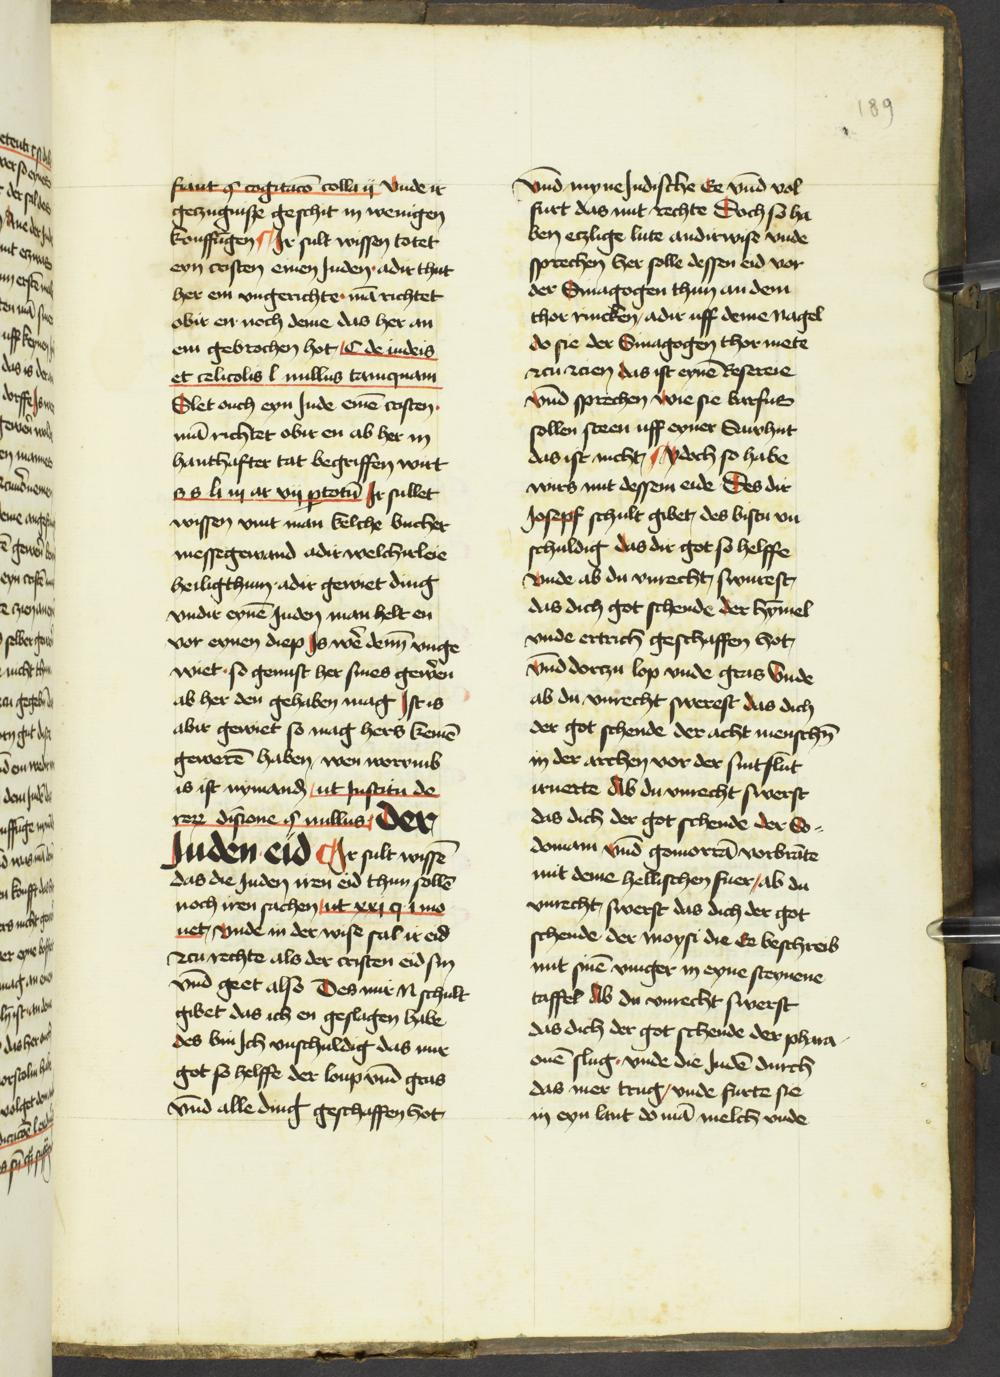 189
fiant § cogitacō colla ij Vnde ir
geczugnisze geschit in wenigen
kouffūgen Ir sult wissen totet
eyn cristen einen Juden adir thut
her em vngerichte mā richtet
obir en noch deme das her an
em gebrochen hot C de iudeis
et celicolis l nullus tamquam
Slet ouch eyn Jude einē cristen
mā richtet obir en ab her in
hanthafter tat begriffen wirt
s s li iij ar vij ptotū Ir sullet
wissen vint man kelche bucher
messegewand adir welchirleie
heiligthum adir gewiet ding
vndir eynē Juden man helt en
vor eynen diep Is wē denn vnge
wiet so genist her sines gewen
ab her den gehaben mag Ist is
abir gewiet so mag hers keinē
gewerē haben wen worvmb
is ist nymands ut Institu de
rerz disione § nullus Der
Juden eid Ir sult wissē
das die Juden iren eid thun sollē
noch iren sachen ut xxij q i mo
uet Vnde in der wise sal ir eid
zcu rechte als der cristen eid sin
vnd geet also Des mir N schult
gibet das ich en geslagen habe
des bin Ich vnschuldig das mir
got so helffe der loup vnd gras
vnd alle ding geschaffen hot
vnd myne Judische Ee vnd vol
furt das mit rechte Doch so ha
ben etzlige lute andirwise vnde
sprechen her solle dessen eid vor
der Sinagogen thun an dem
thor rincken adir uff deme Nagel
do sie der Sinagogen thor mete
zcu zcien das ist eynē kesereie
vnd sprechen wie sie barfus
sollen steen uff eyner Suwhut
das ist nicht ydoch so habe
wirs mit dessem eide Des dir
Josepf schult gibet des bistu vn
schuldig das dir got so helffe
vnde ab du vnrecht swirest
das dich got schende der hymel
vnde ertrich geschaffen hot
vnd dorczu lop vnde gras Vnde
ab du vnrecht swerest das dich
der got schende der acht menschn
in der archen vor der sintflut
irnerte Ab du vnrecht swerst
das dich der got schende der So=
domam vnd gomorrā vorbrāte
mit deme hellischen fuer ab du
vnrecht swerst das dich der got
schende der moysi die Ee beschreib
mit sinē vinger in eyne steynene
taffel Ab du vnrecht swerst
das dich der got schende der phara
onē slug vnde die Judē durch
das mer trug vnde furte sie
in eyn lant do mā melch vnde